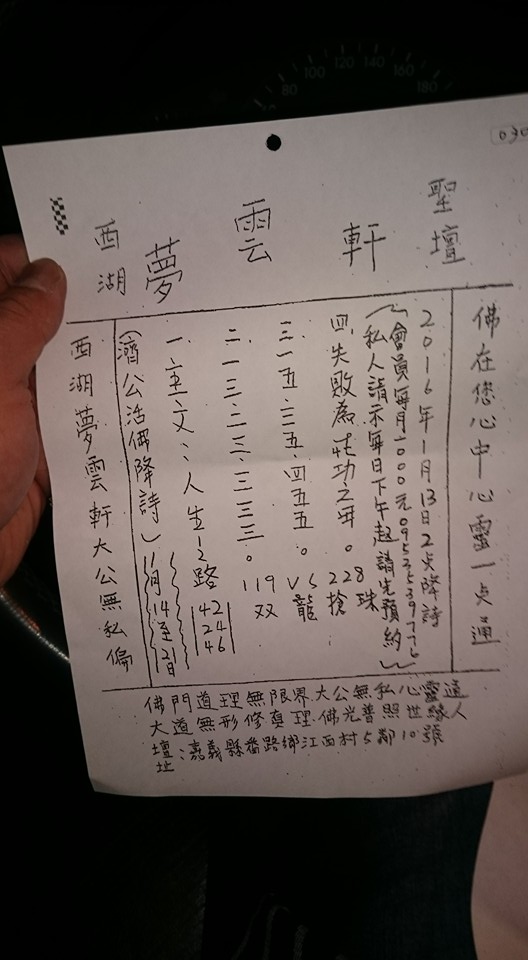 030
聖壇
軒
雲
夢
西湖
佛在您心中心靈一点通
2016年1月13日2点降詩
(會員每月2000元
私人請示每日下午起請先預約)
四、失敗為成功之母。228 搶珠
三、一五、二三五、四五五。VS 龍
二、一三、二三、三三三。119 双
一、六至六文六:人生之路 42 24 46
(濟公活佛降詩)11月14至21日
西湖夢雲軒大公無私偏
佛門道理無限界大公無私心靈通
大道無形修真理佛光普照世緣人
壇址:嘉義縣番路鄉江西村5鄰10號
80 100 120 140 160 180